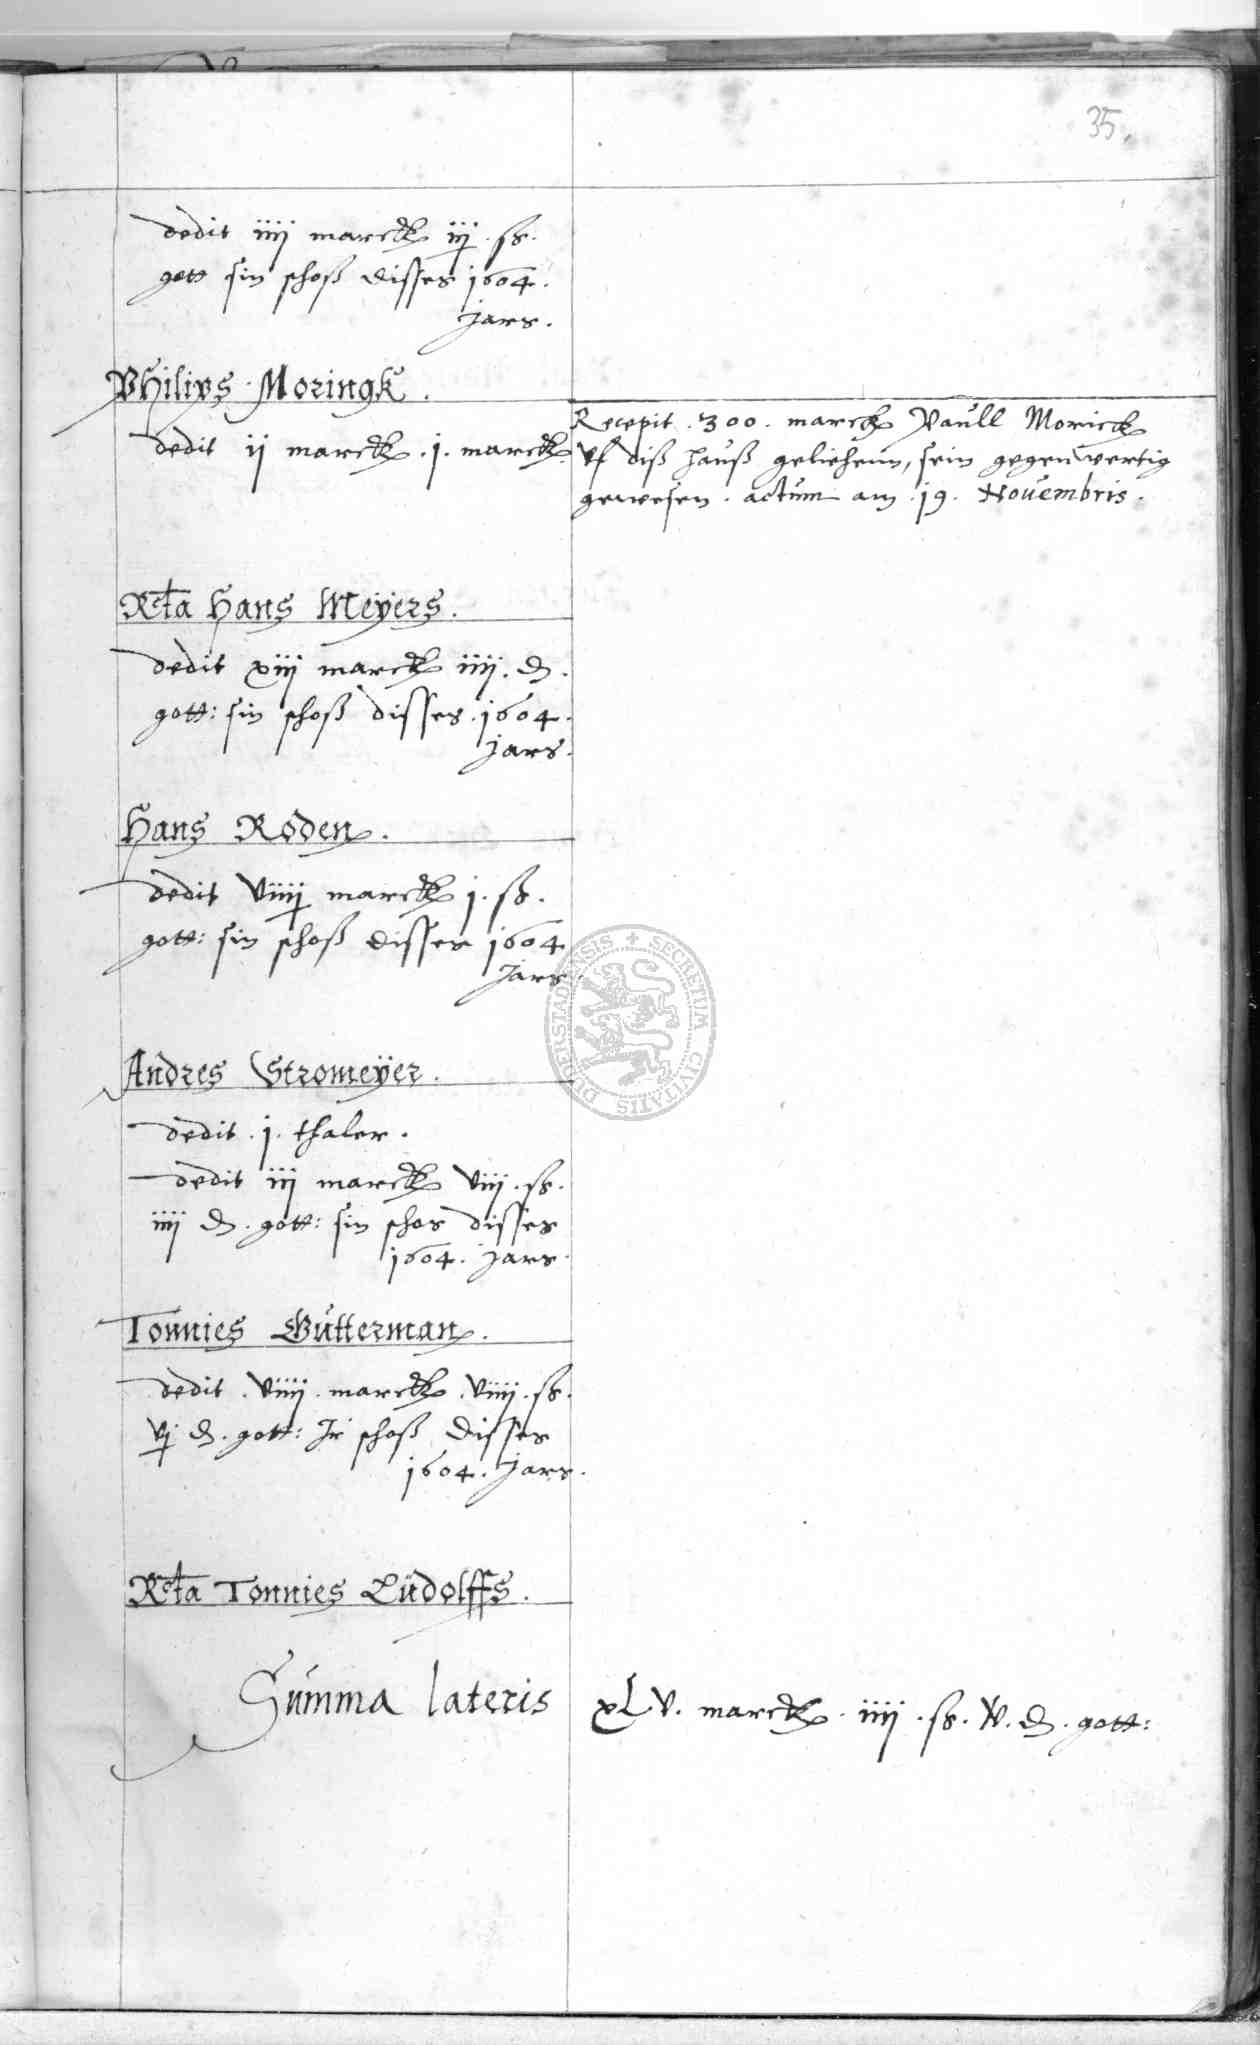 35.
dedit iiij marck iij ß.
gott sin schoß disses 1604.
Jars.
Philips Moringk.
dedit ij marck. j. marck.
Recepit 300. marck Paull Morick
Vf diß hauß geliehenn, sein gegenwertig
gewesen. actum am 19. Novembris.
Rcta Hans Meyers.
dedit xiij marck iiij. d.
gott: sin schoß disses 1604.
Jars.
Hans Roden.
dedit Viiij marck j. ß.
gott: sin schoß disses 1604
Jars.
Andres Stromeÿer.
dedit. j. thaler.
dedit iij marck viij. ß.
iiij d. gott: sin schos disses
1604. Jars.
Tonnies Gutterman.
dedit. Viiij. marck. Viiij. ß.
vj d. gott: Ir schoß disses
1604. Jars.
Rcta Tonnies Lüdolffs.
Summa lateris xLV. marck. iiij. ß. V. d. gott:
SECRETUM CIVITATIS DUDERSTADIENSIS